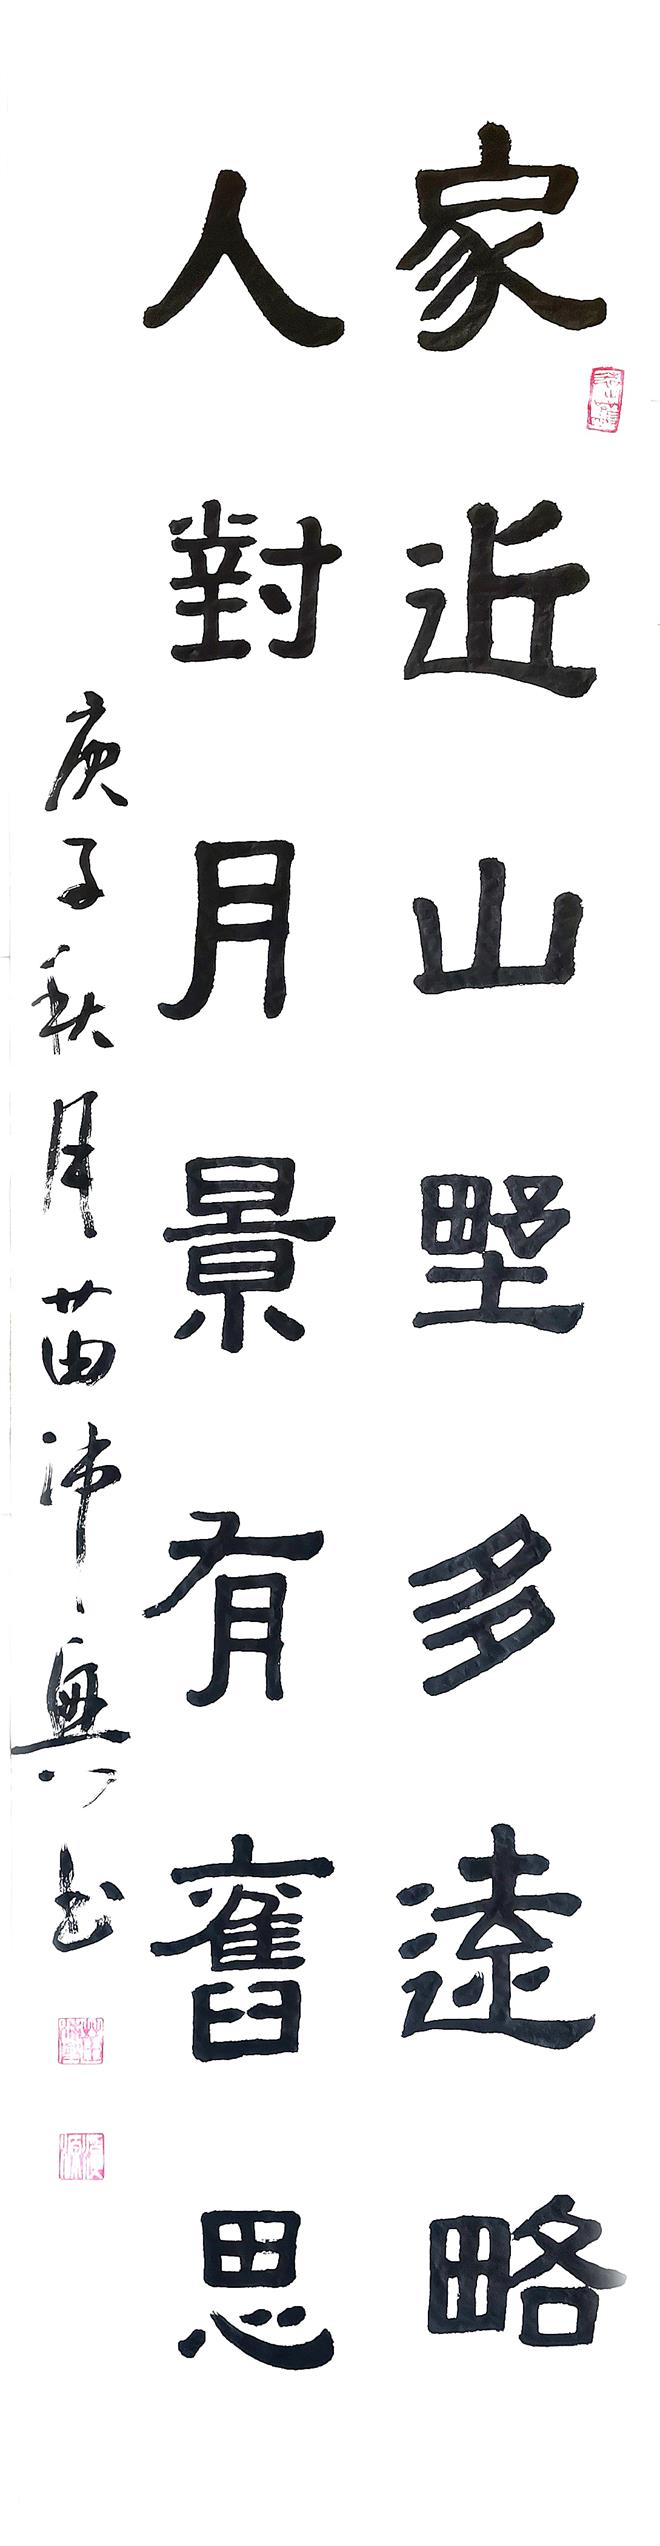 家近山野多遠略
人對月景有舊思
庚子秋月苗沛興书